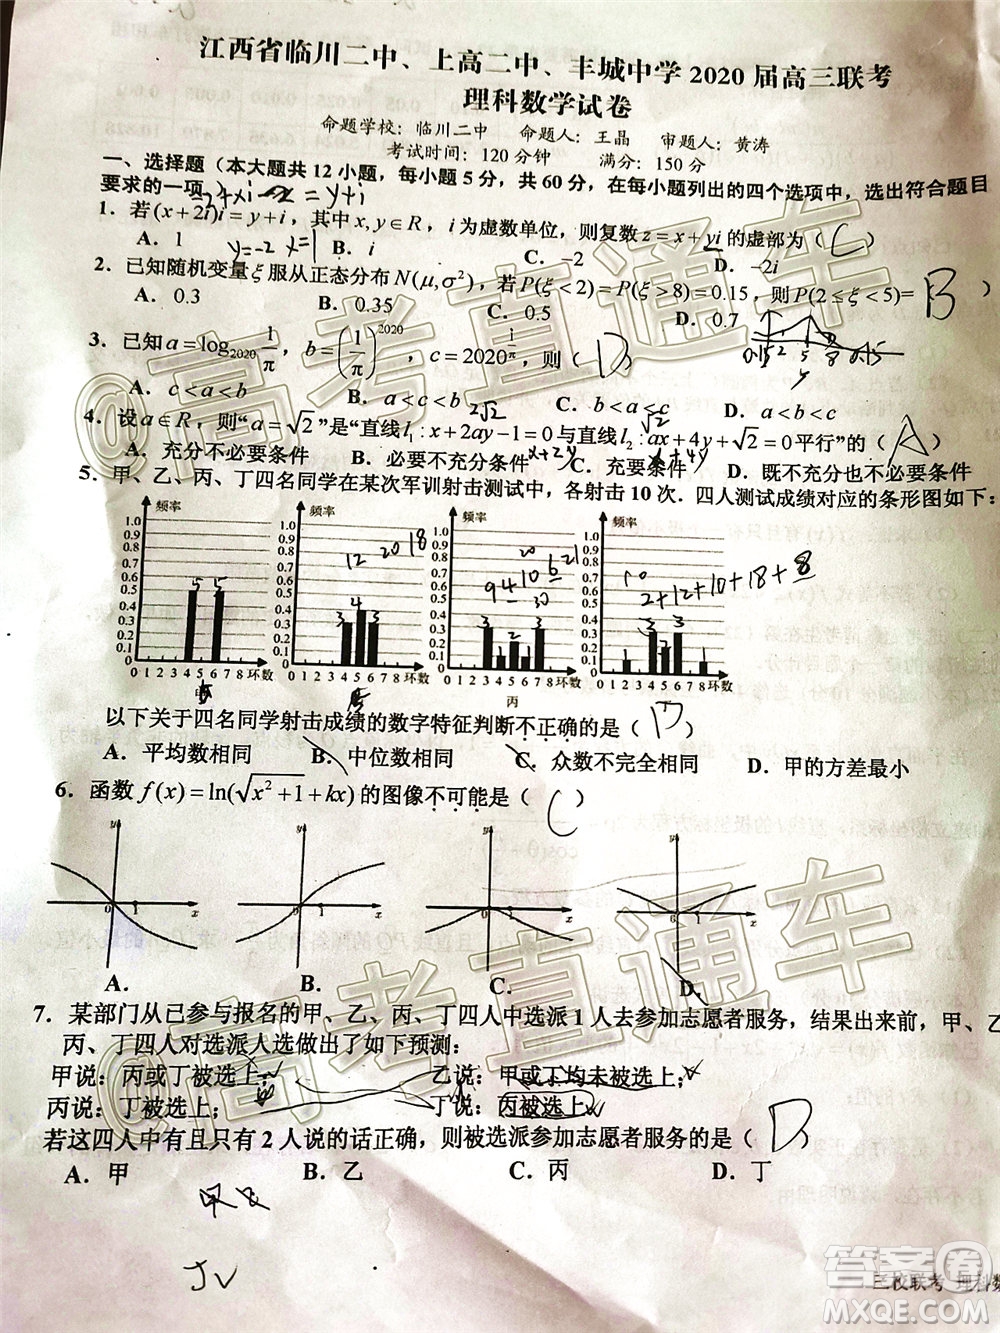 江西省临川二中、上高二中、丰城中学 2020 届高三联考
理科数学试卷
命题学校：临川二中 命题人：王晶 审题人：黄涛
考试时间：120 分钟 满分：150 分
一、选择题（本大题共 12 小题，每小题 5 分，共 60 分，在每小题列出的四个选项中，选出符合题目
要求的一项）
1．若(x+2i)i=y+i，其中x,y∈R，i为虚数单位，则复数z=x+yi的虚部为（C）
y=-2 x=1
A．1 B．i C．-2 D．-2i
2．已知随机变量ξ服从正态分布N(μ,σ²)，若P(ξ<2)=P(ξ>8)=0.15，则P(2≤ξ<5)= B
A．0.3 B．0.35 C．0.5 D．0.7
3．已知a=log₂₀₂₀ 1/π，b=(1/π)^2020，c=2020^(1/π)，则（D）
A．c<a<b B．a<c<b C．b<a<c D．a<b<c
4．设a∈R，则“a=√2”是“直线l₁:x+2ay-1=0与直线l₂:ax+4y+√2=0平行”的（A）
A．充分不必要条件 B．必要不充分条件 C．充要条件 D．既不充分也不必要条件
5．甲、乙、丙、丁四名同学在某次军训射击测试中，各射击 10 次．四人测试成绩对应的条形图如下：
频率 频率 频率 频率
1.0 0.9 0.8 0.7 0.6 0.5 0.4 0.3 0.2 0.1
0 1 2 3 4 5 6 7 8 环数
丙
2+12+10+18+8
以下关于四名同学射击成绩的数字特征判断不正确的是（D）
A．平均数相同 B．中位数相同 C．众数不完全相同 D．甲的方差最小
6．函数f(x)=ln(√(x²+1)+kx)的图像不可能是（C）
A． B． C． D．
7．某部门从已参与报名的甲、乙、丙、丁四人中选派 1 人去参加志愿者服务，结果出来前，甲、乙
丙、丁四人对选派人选做出了如下预测：
甲说：丙或丁被选上； 乙说：甲或丁均未被选上；
丙说：丁被选上； 丁说：丙被选上
若这四人中有且只有 2 人说的话正确，则被选派参加志愿者服务的是（D）
A．甲 B．乙 C．丙 D．丁
三校联考 理科数
@高考直通车
@高考直通车
答案圈
MXQE.COM